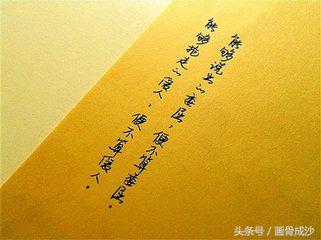 能够说出的委屈，便不算委屈。
能够抢走的爱人，便不算爱人。
头条号／画骨成沙